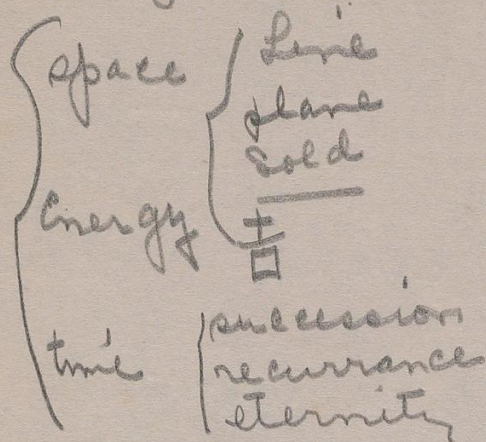 space
Line
plane
Solid
Energy
±
□
time
succession
recurrance
eternity